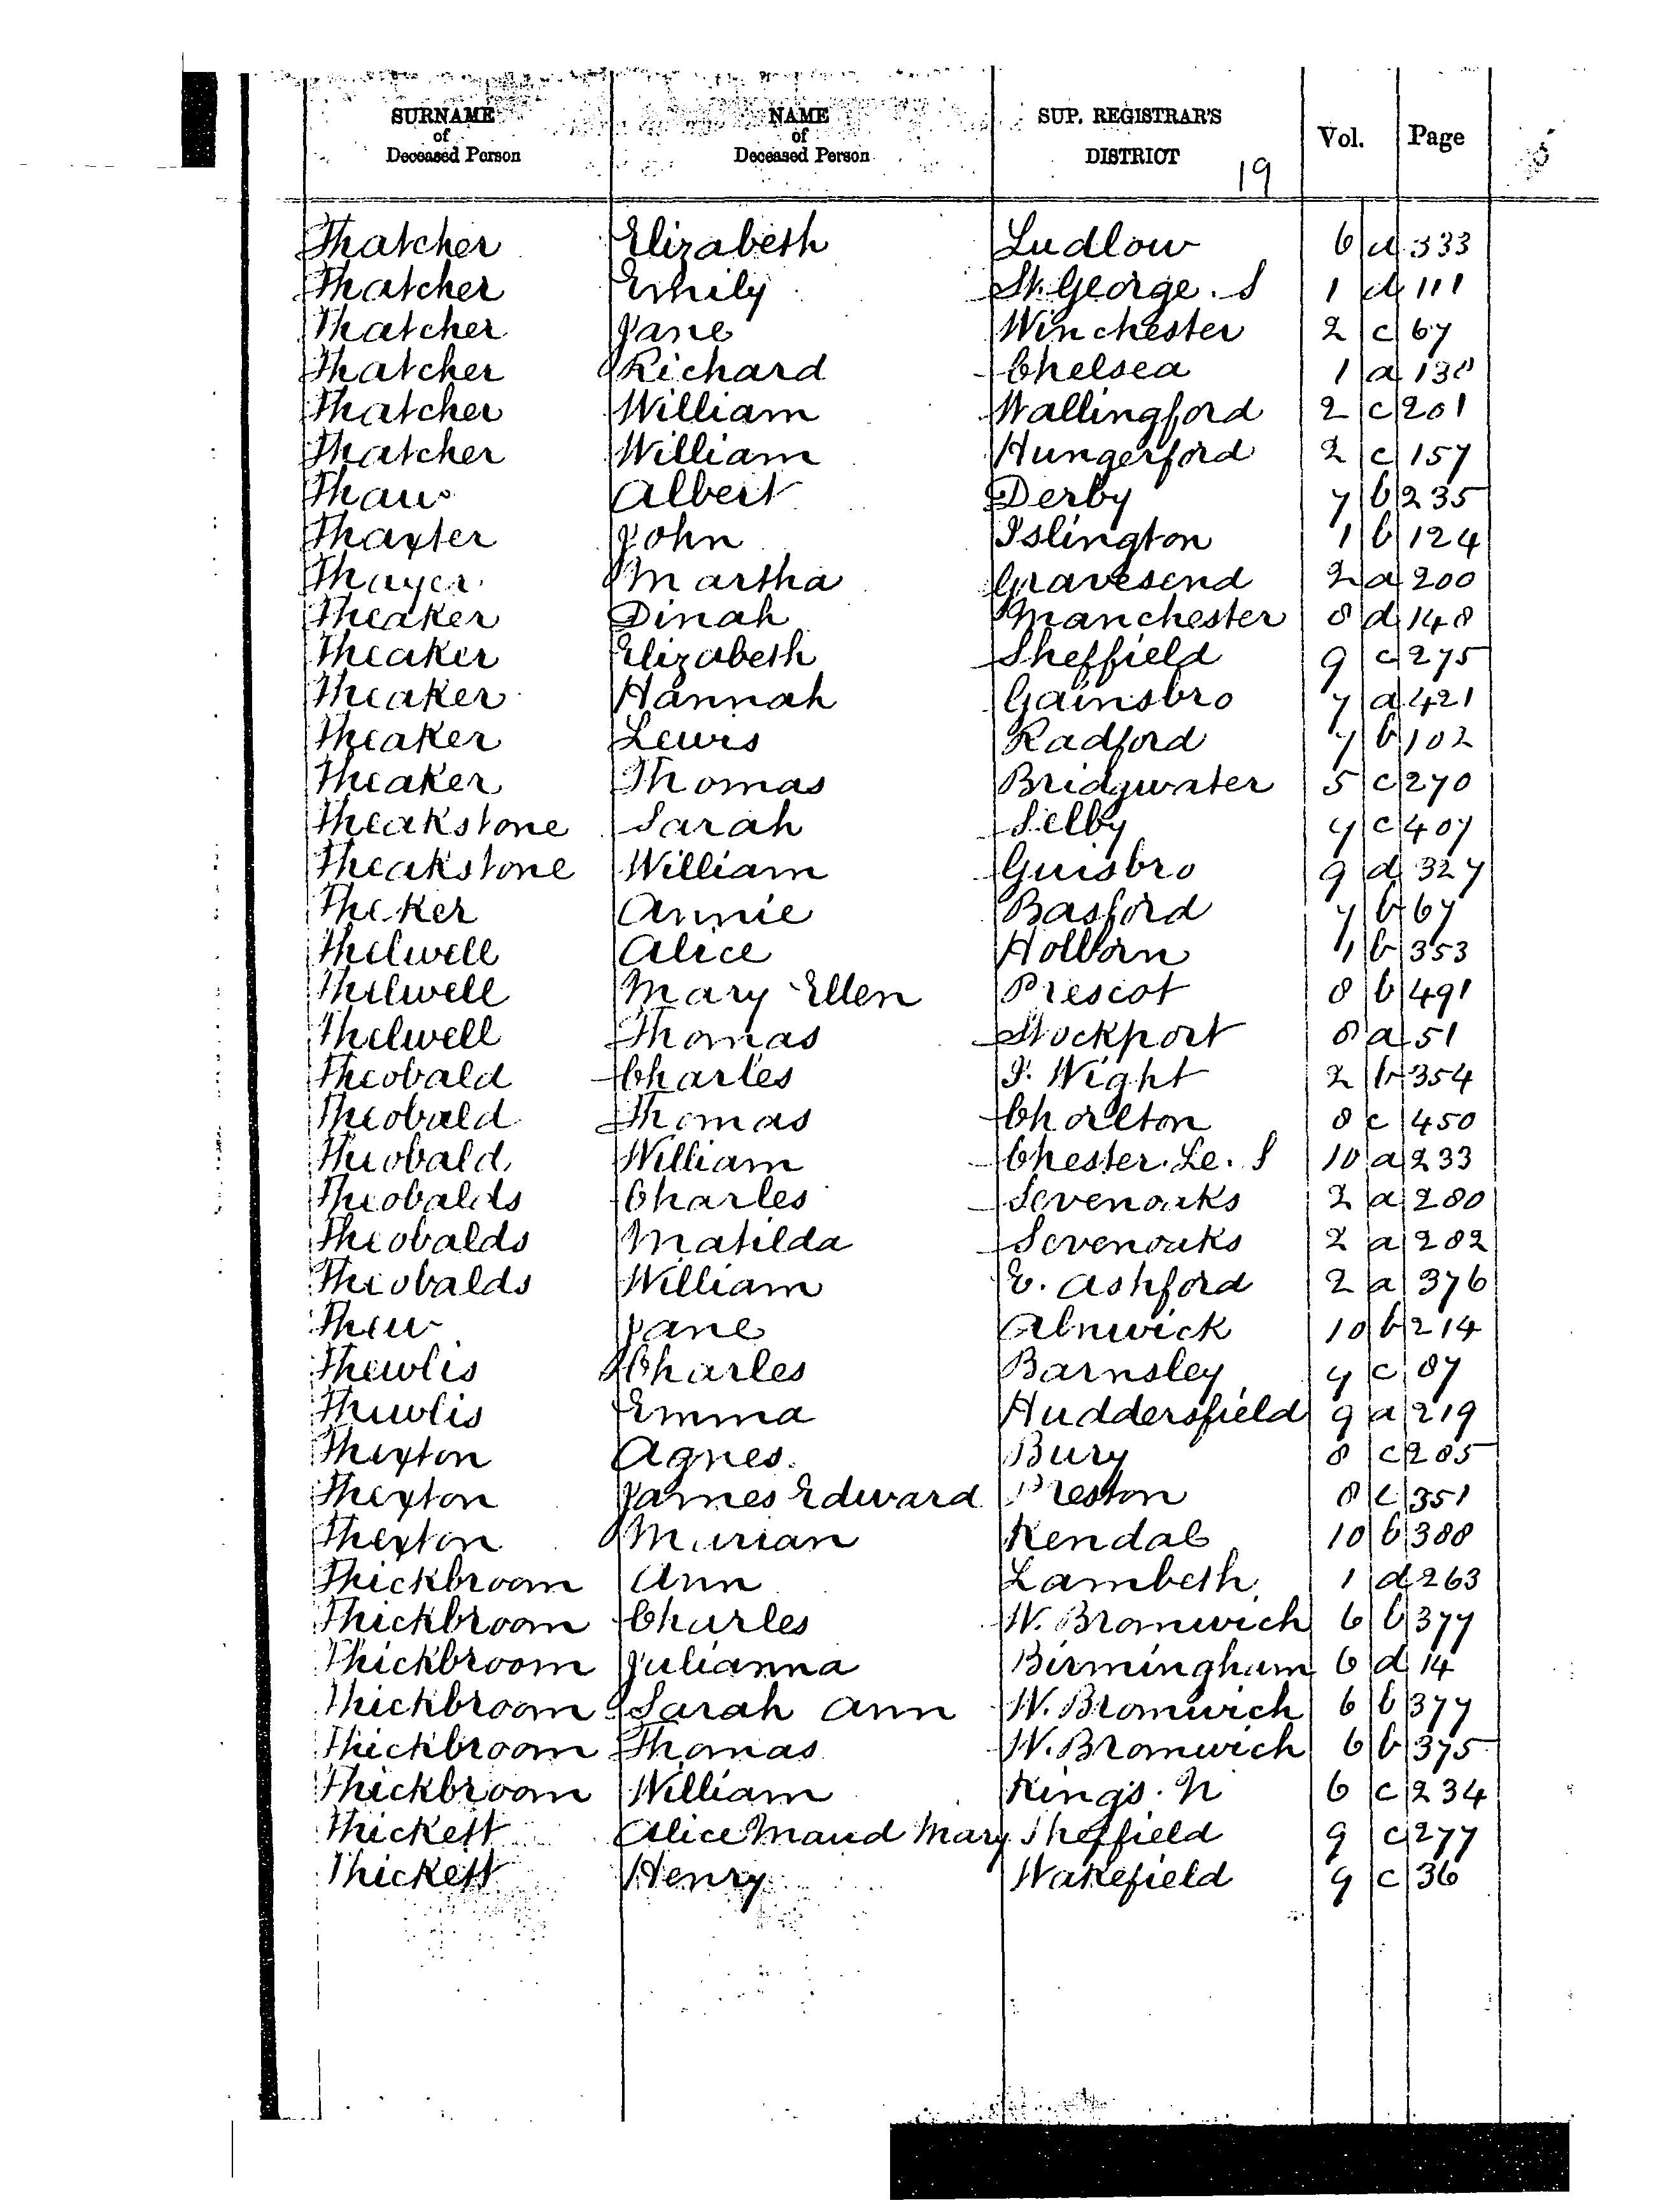 SURNAME of Deceased Person NAME of Deceased Person SUP. REGISTRAR'S DISTRICT 19 Vol. Page
Thatcher Elizabeth Ludlow 6 a 333
Thatcher Emily St. George. S 1 d 111
Thatcher Jane Winchester 2 c 67
Thatcher Richard Chelsea 1 a 138
Thatcher William Wallingford 2 c 201
Thatcher William Hungerford 2 c 157
Thaw Albert Derby 7 b 235
Thaxter John Islington 1 b 124
Thayer Martha Gravesend 2 a 200
Theaker Dinah Manchester 8 d 148
Theaker Elizabeth Sheffield 9 c 275
Theaker Hannah Gainsbro 7 a 421
Theaker Lewis Radford 7 b 102
Theaker Thomas Bridgwater 5 c 270
Theakstone Sarah Selby 9 c 407
Theakstone William Guisbro 9 d 327
Theker Annie Basford 7 b 67
Thelwell Alice Holborn 1 b 353
Thelwell Mary Ellen Prescot 8 b 491
Thelwell Thomas Stockport 8 a 51
Theobald Charles I. Wight 2 b 354
Theobald Thomas Chorlton 8 c 450
Theobald William Chester. Le. S 10 a 233
Theobalds Charles Sevenoaks 2 a 280
Theobalds Matilda Sevenoaks 2 a 282
Theobalds William E. Ashford 2 a 376
Thew Jane Alnwick 10 b 214
Thewlis Charles Barnsley 9 c 87
Thewlis Emma Huddersfield 9 a 219
Thexton Agnes Bury 8 c 285
Thexton James Edward Preston 8 351
Thexton Marian Kendal 10 b 388
Thickbroom Ann Lambeth 1 d 263
Thickbroom Charles W. Bromwich 6 b 377
Thickbroom Julianna Birmingham 6 d 14
Thickbroom Sarah Ann W. Bromwich 6 b 377
Thickbroom Thomas W. Bromwich 6 b 375
Thickbroom William Kings. N 6 c 234
Thickett Alice Maud Mary Sheffield 9 c 277
Thickett Henry Wakefield 9 c 36